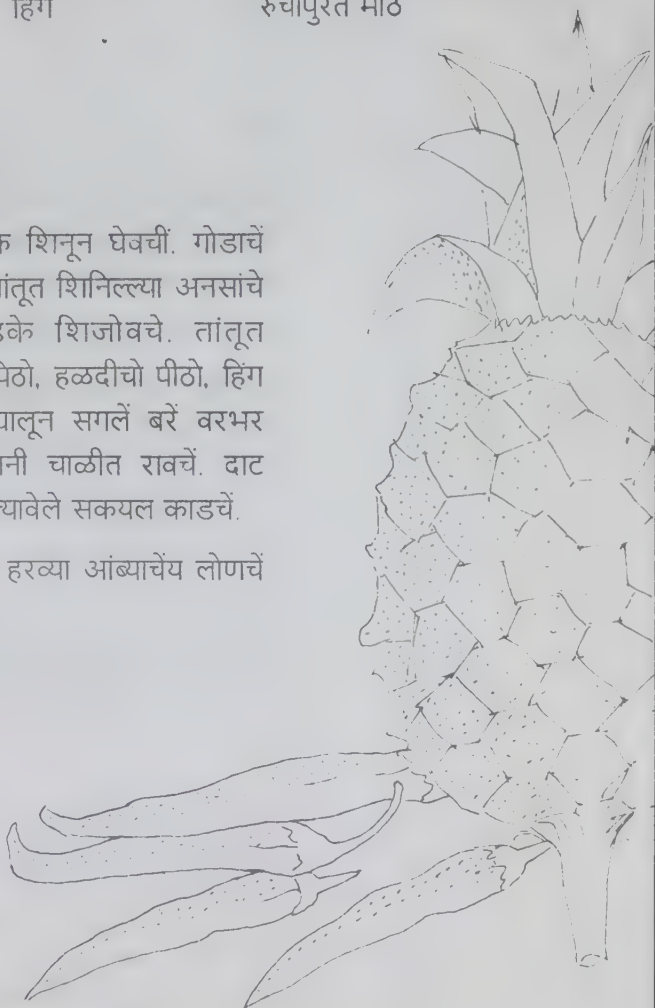 हिंग रुचीपुरतें मीठ
शिनून घेवचीं. गोडाचें
शिनिल्ल्या अनसांचे
शिजोवचे. तांतूत
हळदीचो पीठो, हिंग
घालून सगलें बरें वरभर
चाळीत रावचें. दाट
सकयल काडचें.
हरव्या आंब्याचेंय लोणचें